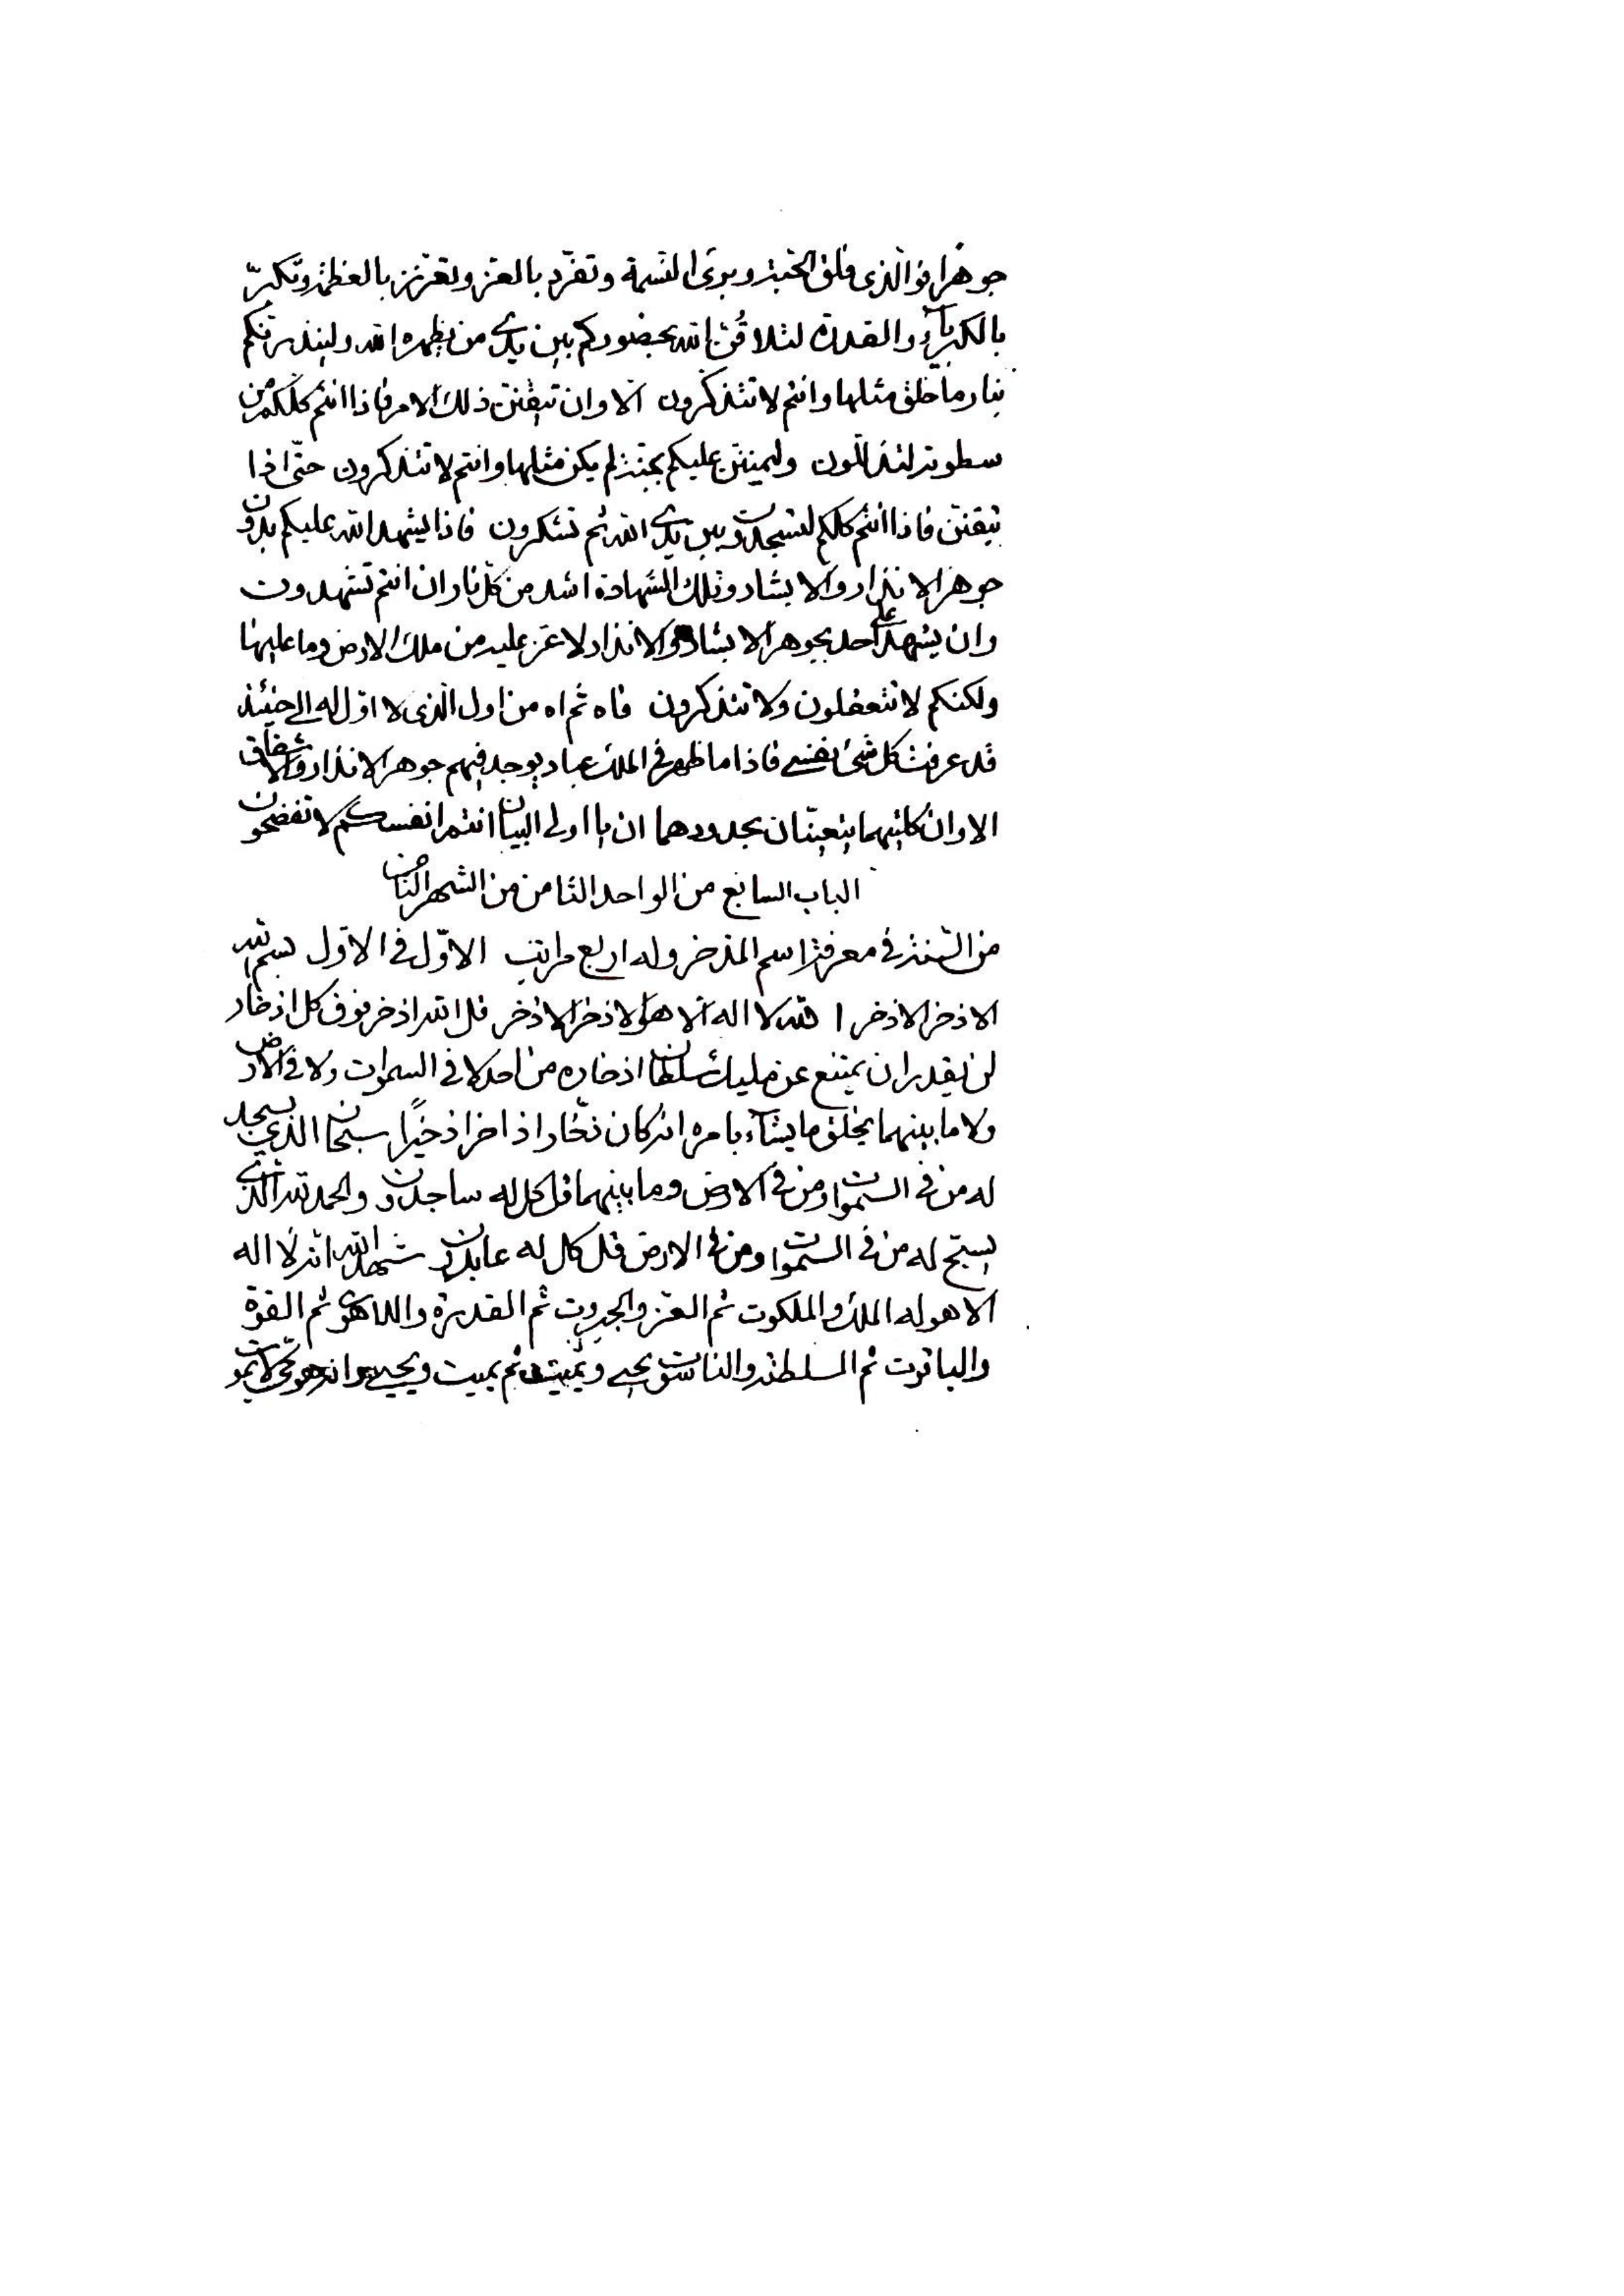 جوهرا فوالذی فلق الحبة وبرئ النسمة وتفرد بالعز وتعزز بالعظمة وتکبر
بالکبریآء والقدرة لتلاقن الله بحضورکم بین یدی من یظهره الله ولینذرنکم
بنار ما خلق مثلها وانتم لا تتذکرون الا وان تیقنن ذلک الامر فاذا انتم کلکم من
سطوته لتذللون ولیمنن علیکم بجنة لم یکن مثلها وانتم لا تتذکرون حتی اذا
تیقنن فاذا انتم کلکم لتسجدون بین یدی الله ثم تشکرون فاذا یشهد الله علیکم بدون
جوهر الانذار والابشار وتلک الشهادة اشد من کل نار ان انتم تشهدون
وان یشهد علی احد بجوهر الابشار والانذار لاعز علیه من ملک الارض وما علیها
ولکنکم لا تتعقلون ولا تتذکرون فاه ثم اه من اول الذی لا اول له الی حینئذ
قد عرفت کل شئ نفسی فاذا ما ظهر فی الملک عباد یوجد فیهم جوهر الانذار والاشفاق
الا وان کلتیهما یتعینان بحدودهما ان یا اولی البیان انتم انفسکم لا تفضحون
الباب السابع من الواحد الثامن من الشهر الثامن
من السنة فی معرفة اسم المذخر وله اربع مراتب الاول فی الاول بسم الله
الاذخر الاذخر الله لا اله الا هو الاذخر الاذخر قل الله اذخر فوق کل اذخار
لن یقدر ان یمتنع عن ملیک سلطان اذخاره من احد لا فی السموات ولا فی الارض
ولا ما بینهما یخلق ما یشآء بامره انه کان ذخارا ذاخرا ذخیرا سبحان الذی یسجد
له من فی السموات ومن فی الارض وما بینهما قل کل له ساجدون والحمد لله الذی
یسبح له من فی السموات ومن فی الارض قل کل له عابدون شهد الله انه لا اله
الا هو له الملک والملکوت ثم العز والجبروت ثم القدرة واللاهوت ثم القوة
والیاقوت ثم السلطنة والناسوت یحیی ویمیت ثم یمیت ویحیی وانه هو حی لا یموت